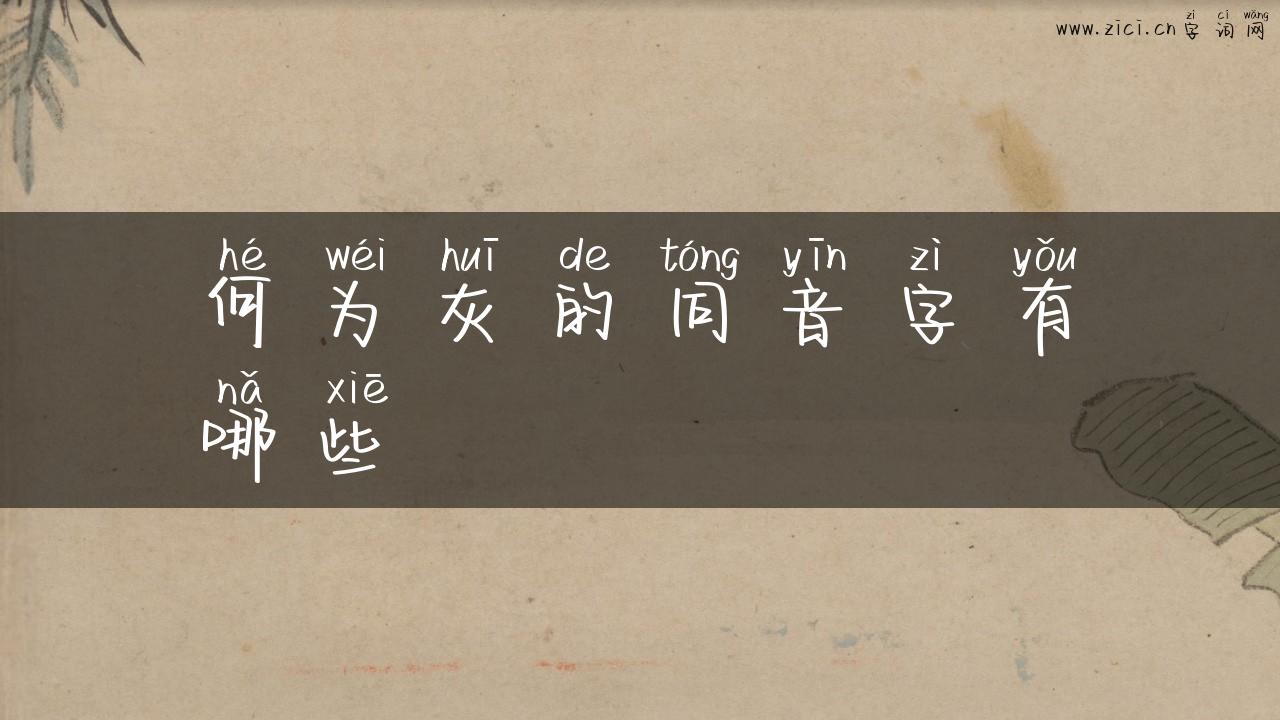 zì cí wǎng
www.zici.cn 字 词 网
hé wéi huī de tóng yīn zì yǒu
何 为 灰 的 同 音 字 有
nǎ xiē
哪 些